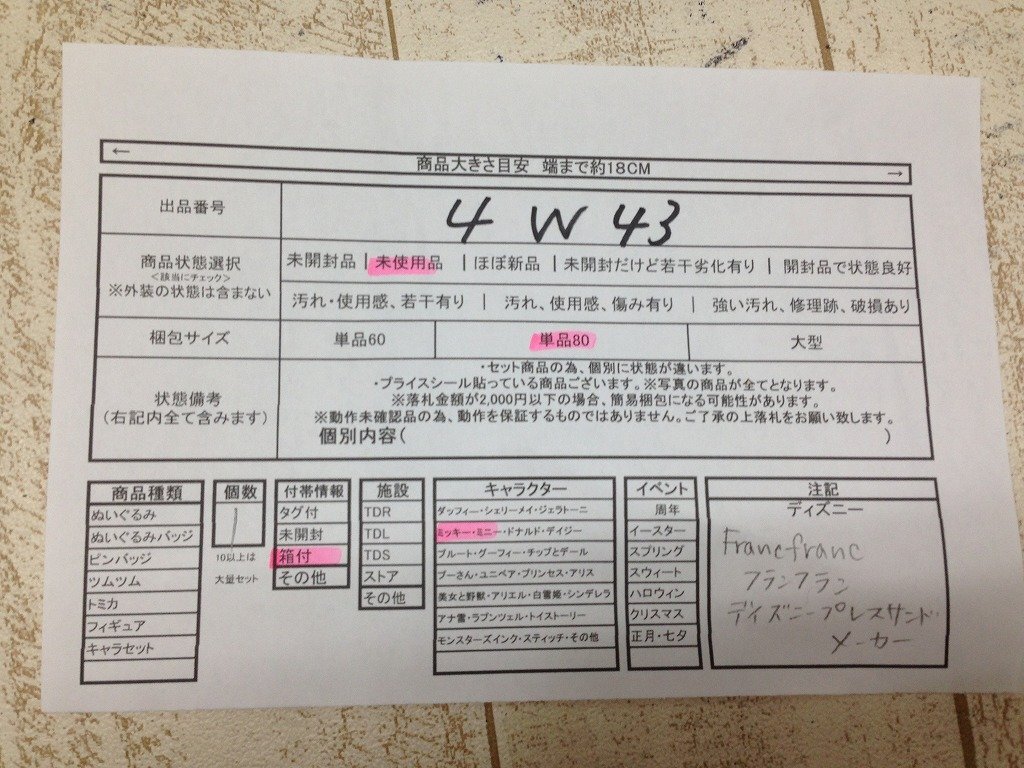 ← 商品大きさ目安 端まで約18CM →
出品番号 4 W 43
商品状態選択 未開封品 | 未使用品 | ほぼ新品 | 未開封だけど若干劣化有り | 開封品で状態良好
<該当にチェック>
※外装の状態は含まない 汚れ・使用感、若干有り | 汚れ、使用感、傷み有り | 強い汚れ、修理跡、破損あり
梱包サイズ 単品60 単品80 大型
状態備考
(右記内全て含みます)
・セット商品の為、個別に状態が違います。
・プライスシール貼っている商品ございます。※写真の商品が全てとなります。
※落札金額が2,000円以下の場合、簡易梱包になる可能性があります。
※動作未確認品の為、動作を保証するものではありません。ご了承の上落札をお願い致します。
個別内容( )
商品種類
ぬいぐるみ
ぬいぐるみバッジ
ピンバッジ
ツムツム
トミカ
フィギュア
キャラセット
個数
1
10以上は
大量セット
付帯情報
タグ付
未開封
箱付
その他
施設
TDR
TDL
TDS
ストア
その他
キャラクター
ダッフィー・シェリーメイ・ジェラトーニ
ミッキー・ミニー・ドナルド・デイジー
プルート・グーフィー・チップとデール
プーさん・ユニベア・プリンセス・アリス
美女と野獣・アリエル・白雪姫・シンデレラ
アナ雪・ラプンツェル・トイストーリー
モンスターズインク・スティッチ・その他
イベント
周年
イースター
スプリング
スウィート
ハロウィン
クリスマス
正月・七夕
注記
ディズニー
Francfranc
フランフラン
ディズニープレスサンド
メーカー